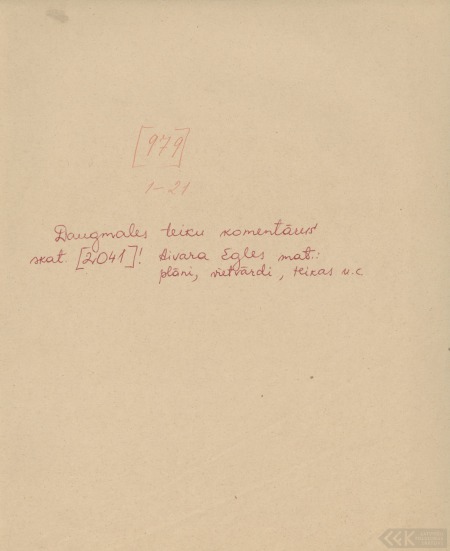 [979]
1-21
Daugmales teiku komentārus
skat. [2041]! Aivara Egles mat.:
plāni, vietvārdi, teikas u.c.